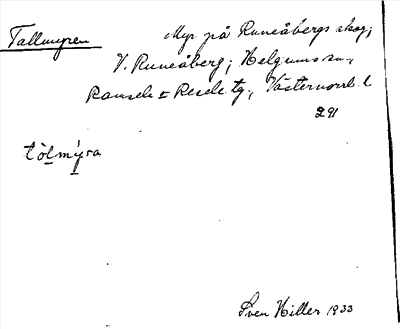 Tallmyren
Myr på Runeåbergs skog,
V. Runeåberg; Helgums sn.,
Ramsele o Resele tg., Västernorrl. l
291
tòlmýra
Sven Hiller 1933